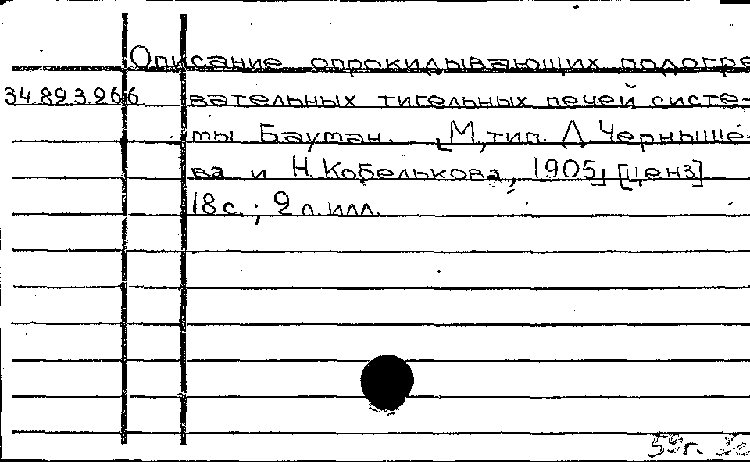 Описание опрокидывающих подогре
34.893.966 вательных тигельных печей систе-
мы Бауман. [М, тип. Л Черныше-
ва и Н. Кобелькова, 1905] [ценз]
18 с.; 2 л. илл.
59г.